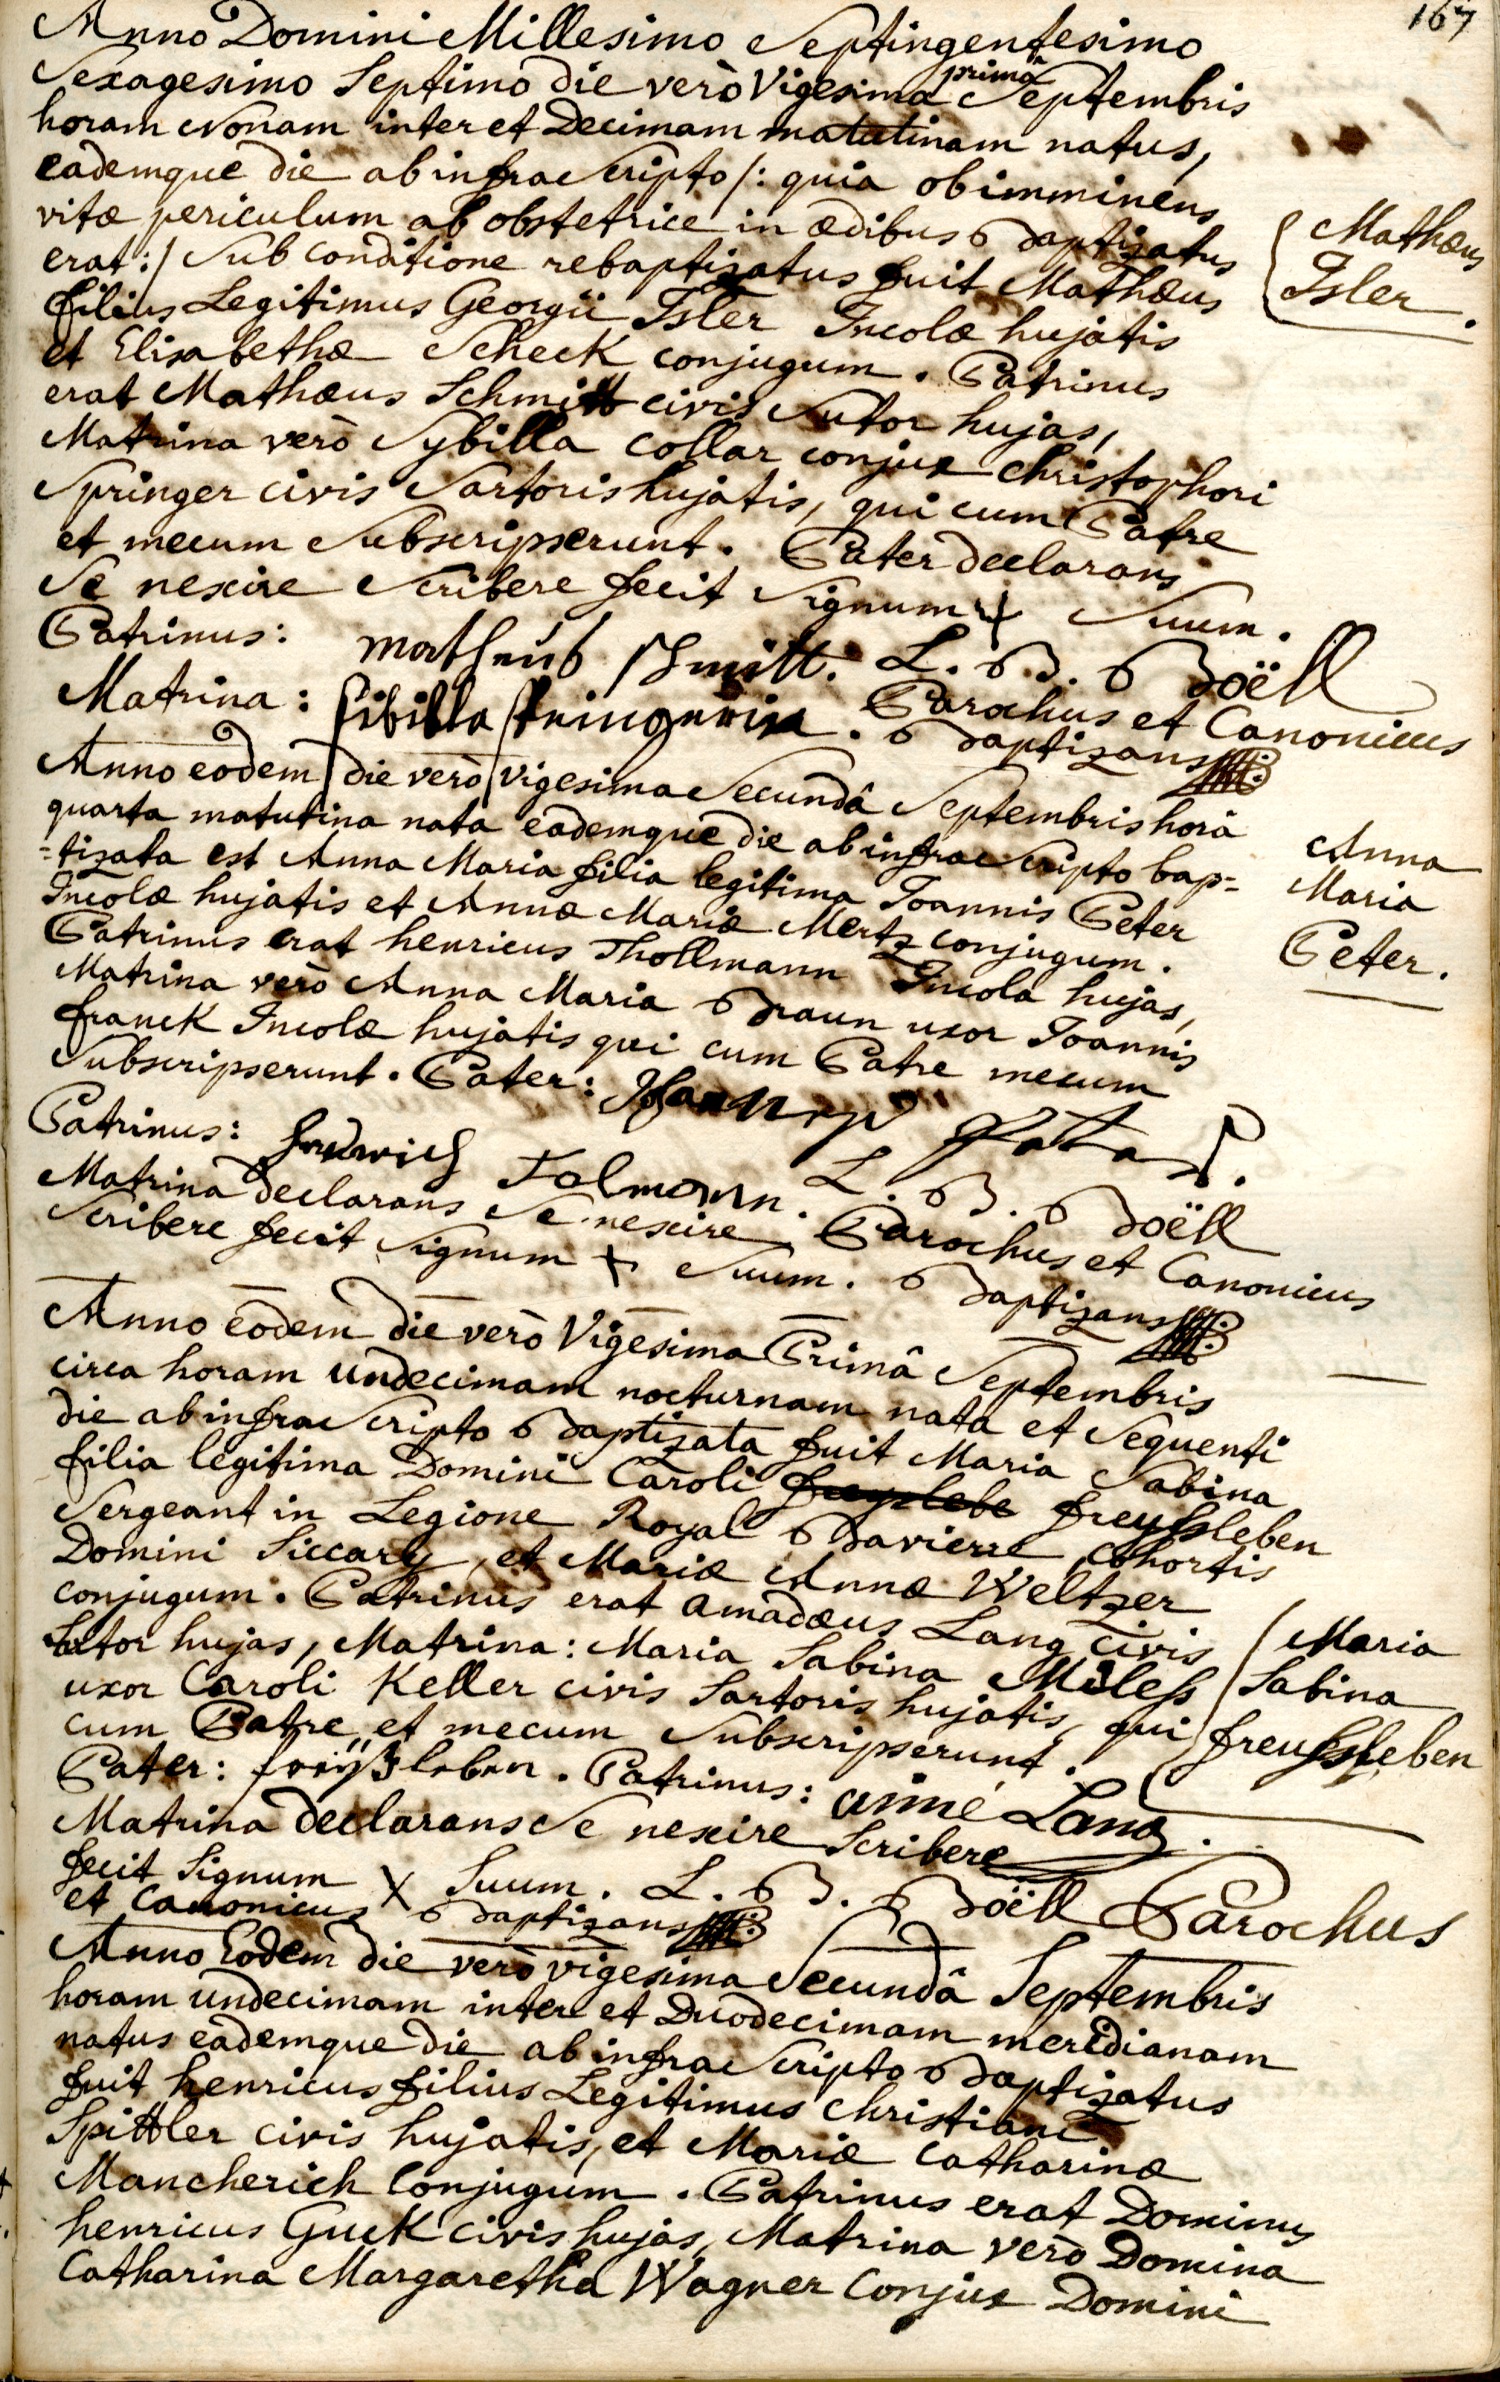 167
Anno Domini Millesimo Septingentesimo
Sexagesimo Septimo die verò Vigesima primâ Septembris
horam Nonam inter et Decimam matutinam natus,
eademque die ab infra Scripto /: quia ob imminens
vitæ periculum ab obstetrice in ædibus Baptizatus
erat :/ Sub conditione rebaptizatus fuit Mathæus
filius Legitimus Georgii Isler Incolæ hujatis
et Elisabethæ Scheck conjugum. Patrinus
erat Mathæus Schmitt civis Sutor hujas,
Matrina verò Sybilla Collar conjux Christophori
Springer civis Sartoris hujatis, qui cum Patre
et mecum Subscripserunt. Pater declarans
Se nescire Scribere fecit Signum + Suum.
Mathæus
Isler.
Patrinus: Matheus schmitt. L. B. Boëll
Matrina: sibilla springerin. Parochus et Canonicus
Baptizans
Anno eodem die verò vigesima Secundâ Septembris horâ
quarta matutina nata eademque die ab infra Scripto bap=
=tizata est Anna Maria filia legitima Joannis Peter
Incolæ hujatis et Annæ Mariæ Mertz conjugum.
Patrinus erat henricus Thollmann Incola hujas,
Matrina verò Anna Maria Braun uxor Joannis
franck Incolæ hujatis qui cum Patre mecum
Subscripserunt. Pater:
Anna
Maria
Peter.
Patrinus: Tolmann. L. B. Boëll
Matrina declarans Se nescire Parochus et Canonicus
Scribere fecit Signum + Suum. Baptizans
Anno eodem die verò Vigesima Primâ Septembris
circa horam undecimam nocturnam nata et Sequenti
die ab infra Scripto Baptizata fuit Maria Sabina
filia legitima Domini Caroli freyslebe freyssleben
Sergeant in Legione Royal Bavierre Cohortis
Domini Siccary, et Mariæ Annæ Weltzer
conjugum. Patrinus erat Amadæus Lang civis
Sutor hujas, Matrina: Maria Sabina Miless
uxor Caroli Keller civis Sartoris hujatis, qui
cum Patre, et mecum Subscripserunt.
Maria
Sabina
freyssleben
Pater: freÿßleben. Patrinus: aimé Lang.
Matrina declarans Se nescire Scribere
fecit Signum x Suum. L. B. Boëll Parochus
et Canonicus Baptizans
Anno Eodem die verò vigesima Secundâ Septembris
horam undecimam inter et Duodecimam meridianam
natus eademque die ab infra Scripto Baptizatus
fuit henricus filius Legitimus Christiani
Spittler civis hujatis, et Mariæ Catharinæ
Mancherich Conjugum. Patrinus erat Dominus
henricus Guck civis hujas, Matrina verò Domina
Catharina Margaretha Wagner Conjux Domini